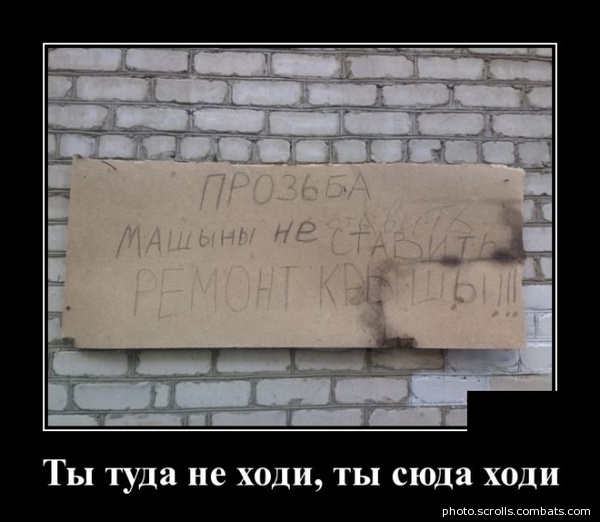 ПРОЗЬБА
МАШЫНЫ НЕ СТАВИТЬ
РЕМОНТ КРЫШЫ!!!
Ты туда не ходи, ты сюда ходи
photo.scrolls.combats.com